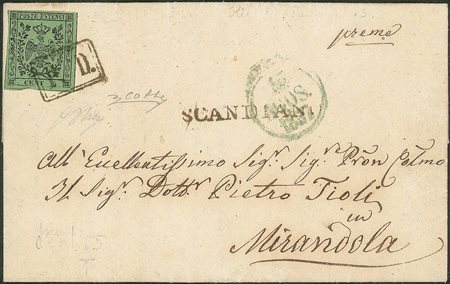 POSTE ESTENSI
CENT. 5
P.D.
preme
SCANDIANO
AGOS.
1857
All' Eccellentissimo Sigr. Sigr. Pròn Colmo
Il Sigr. Dottr. Pietro Tioli
in
Mirandola